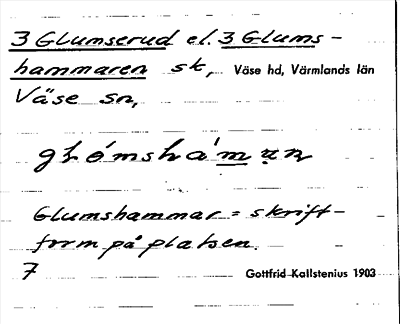 3 Glumserud el. 3 Glums-
hammaren sk, Väse hd, Värmlands län
Väse sn,
Glumshammar = skrift-
form på platsen.
7 Gottfrid Kallstenius 1903